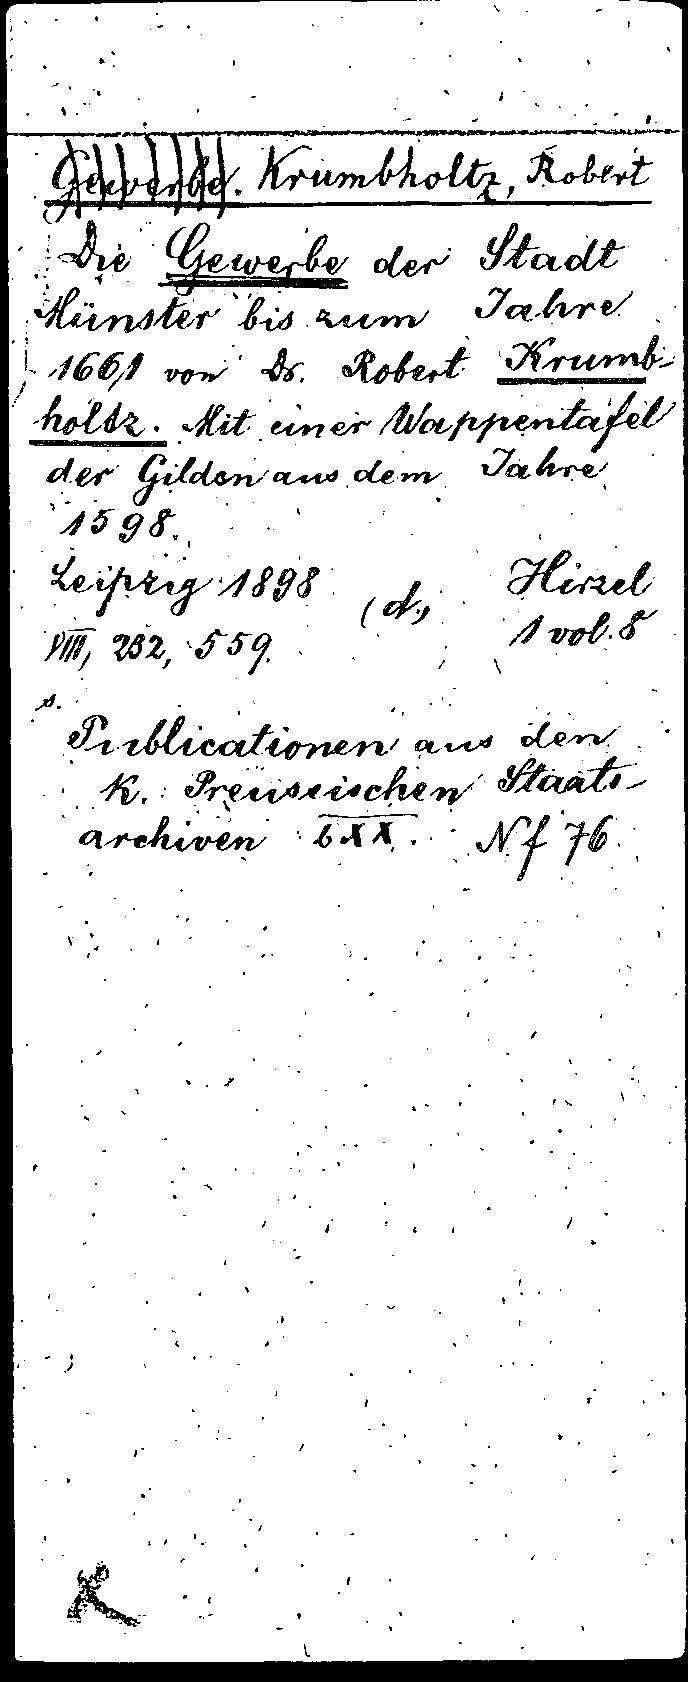 Gewerbe. Krumbholtz, Robert
Die Gewerbe der Stadt
Münster bis zum Jahre
1661 von Dr. Robert Krumb-
holtz. Mit einer Wappentafel
der Gilden aus dem Jahre
1598.
Leipzig 1898 (d.) Hirzel
VIII, 232, 559. 1 vol. 8
s.
Publicationen aus den
K. Preussischen Staats-
archiven LXX. Nf 76